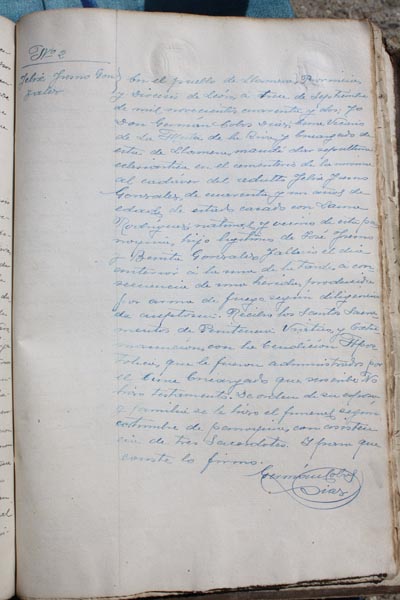 Nº 2
Félix Juano Gon-
zález
En el pueblo de Llamera, Provincia
y Diócesis de León, a trece de septiembre
de mil novecientos cuarenta y dos, Yo
Don Germán Cobos Díaz, Cura Vicario
de La y Encargado de
esta de Llamera, mandé dar sepultura
eclesiástica en el cementerio de la misma
al cadáver del adulto Félix Juano
González, de cuarenta y un años de
edad, de estado casado con
Rodríguez, natural y vecino de esta pa-
rroquia, hijo legítimo de José Juano
y Benita González. Falleció el día
anterior a la una de la tarde a con-
secuencia de una herida producida
por arma de fuego según diligencia
de autopsia. Recibió los Santos Sacra-
mentos de Penitencia Viático, y Extre-
maunción, con la Bendición Apos-
tólica, que le fueron administrados por
el Cura Encargado que suscribe. No
hizo testamento. De orden de su esposa
y familia se le hizo el funeral según
costumbre de parroquia, con asisten-
cia de tres Sacerdotes. Y para que
conste lo firmo.
Germán Cobos
Díaz